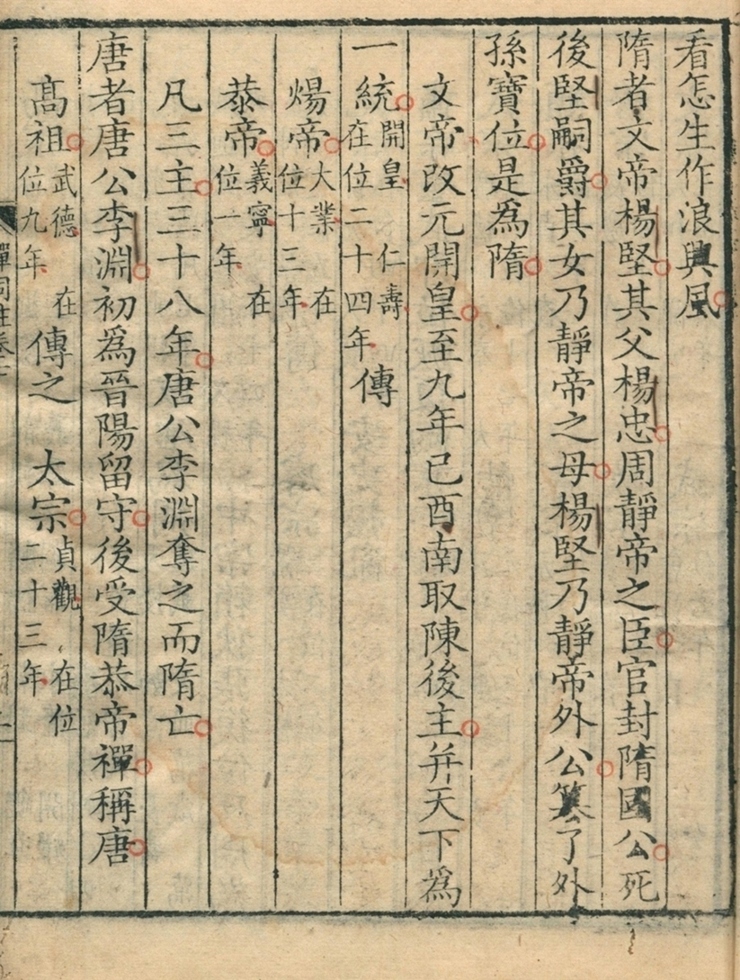 看怎生作浪興風
隋者文帝楊堅其父楊忠周靜帝之臣官封隋國公死
後堅嗣爵其女乃靜帝之母楊堅乃靜帝外公篡了外
孫寶位是為隋
文帝改元開皇至九年已酉南取陳後主并天下為
一統開皇 仁壽在位二十四年傳
煬帝大業 在位十三年
恭帝義寧 在位一年
凡三主三十八年唐公李淵奪之而隋亡
唐者唐公李淵初為晉陽留守後受隋恭帝禪稱唐
高祖武德 在位九年傳之 太宗貞觀 在位二十三年